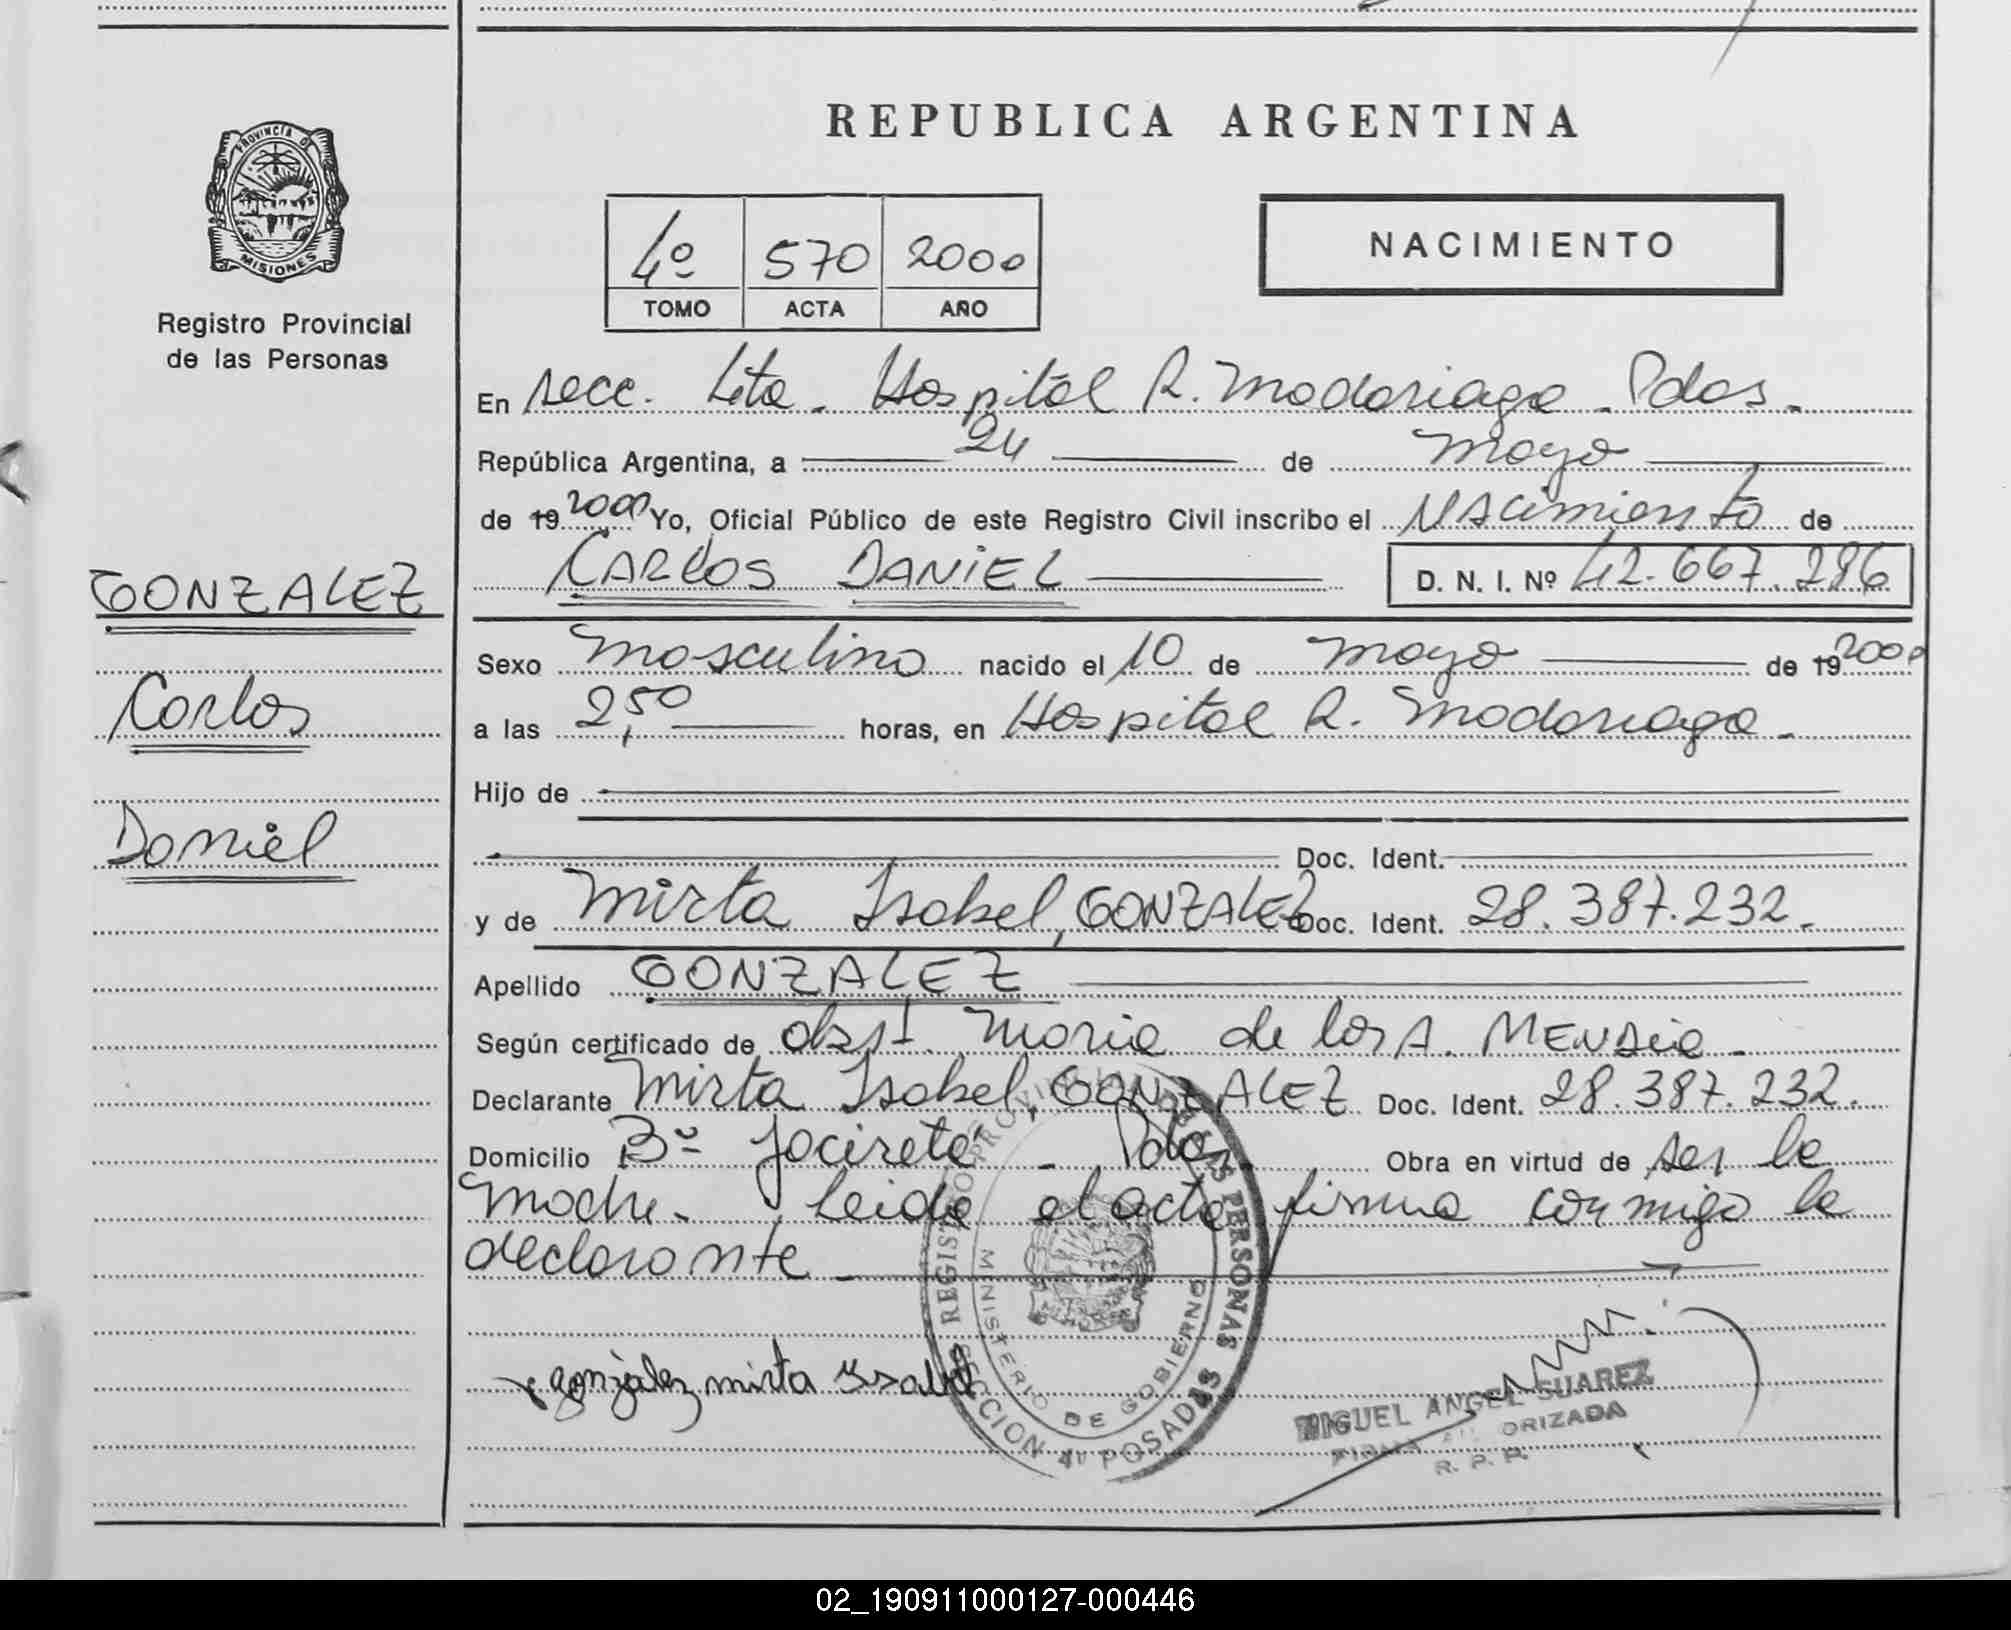 REPUBLICA ARGENTINA
PROVINCIA DE
MISIONES
Registro Provincial
de las Personas
4º 570 2000
TOMO ACTA AÑO
NACIMIENTO
En secc. 4ta. Hospital R. Madariaga - Pdas.
República Argentina, a 24 de mayo
de 19 2000 Yo, Oficial Público de este Registro Civil inscribo el Nacimiento de
CARLOS DANIEL D. N. I. Nº 42.667.286
GONZALEZ
Carlos
Daniel
Sexo masculino nacido el 10 de mayo de 19 2000
a las 2,50 horas, en Hospital R. Madariaga.
Hijo de
Doc. Ident.
y de Mirta Isabel, GONZALEZ Doc. Ident. 28.387.232.
Apellido GONZALEZ
Según certificado de obst. Maria de los A. MENDEZ
Declarante Mirta Isabel, GONZALEZ Doc. Ident. 28.387.232.
Domicilio Bº Yacireta - Pdas. Obra en virtud de ser la
madre. Leida el acta firma conmigo la
declarante
gonzález mirta Isabel
REGISTRO PROVINCIAL DE LAS PERSONAS
MINISTERIO DE GOBIERNO
SECCION 4ta POSADAS
MIGUEL ANGEL SUAREZ
FIRMA AUTORIZADA
R. P. P.
02_190911000127-000446